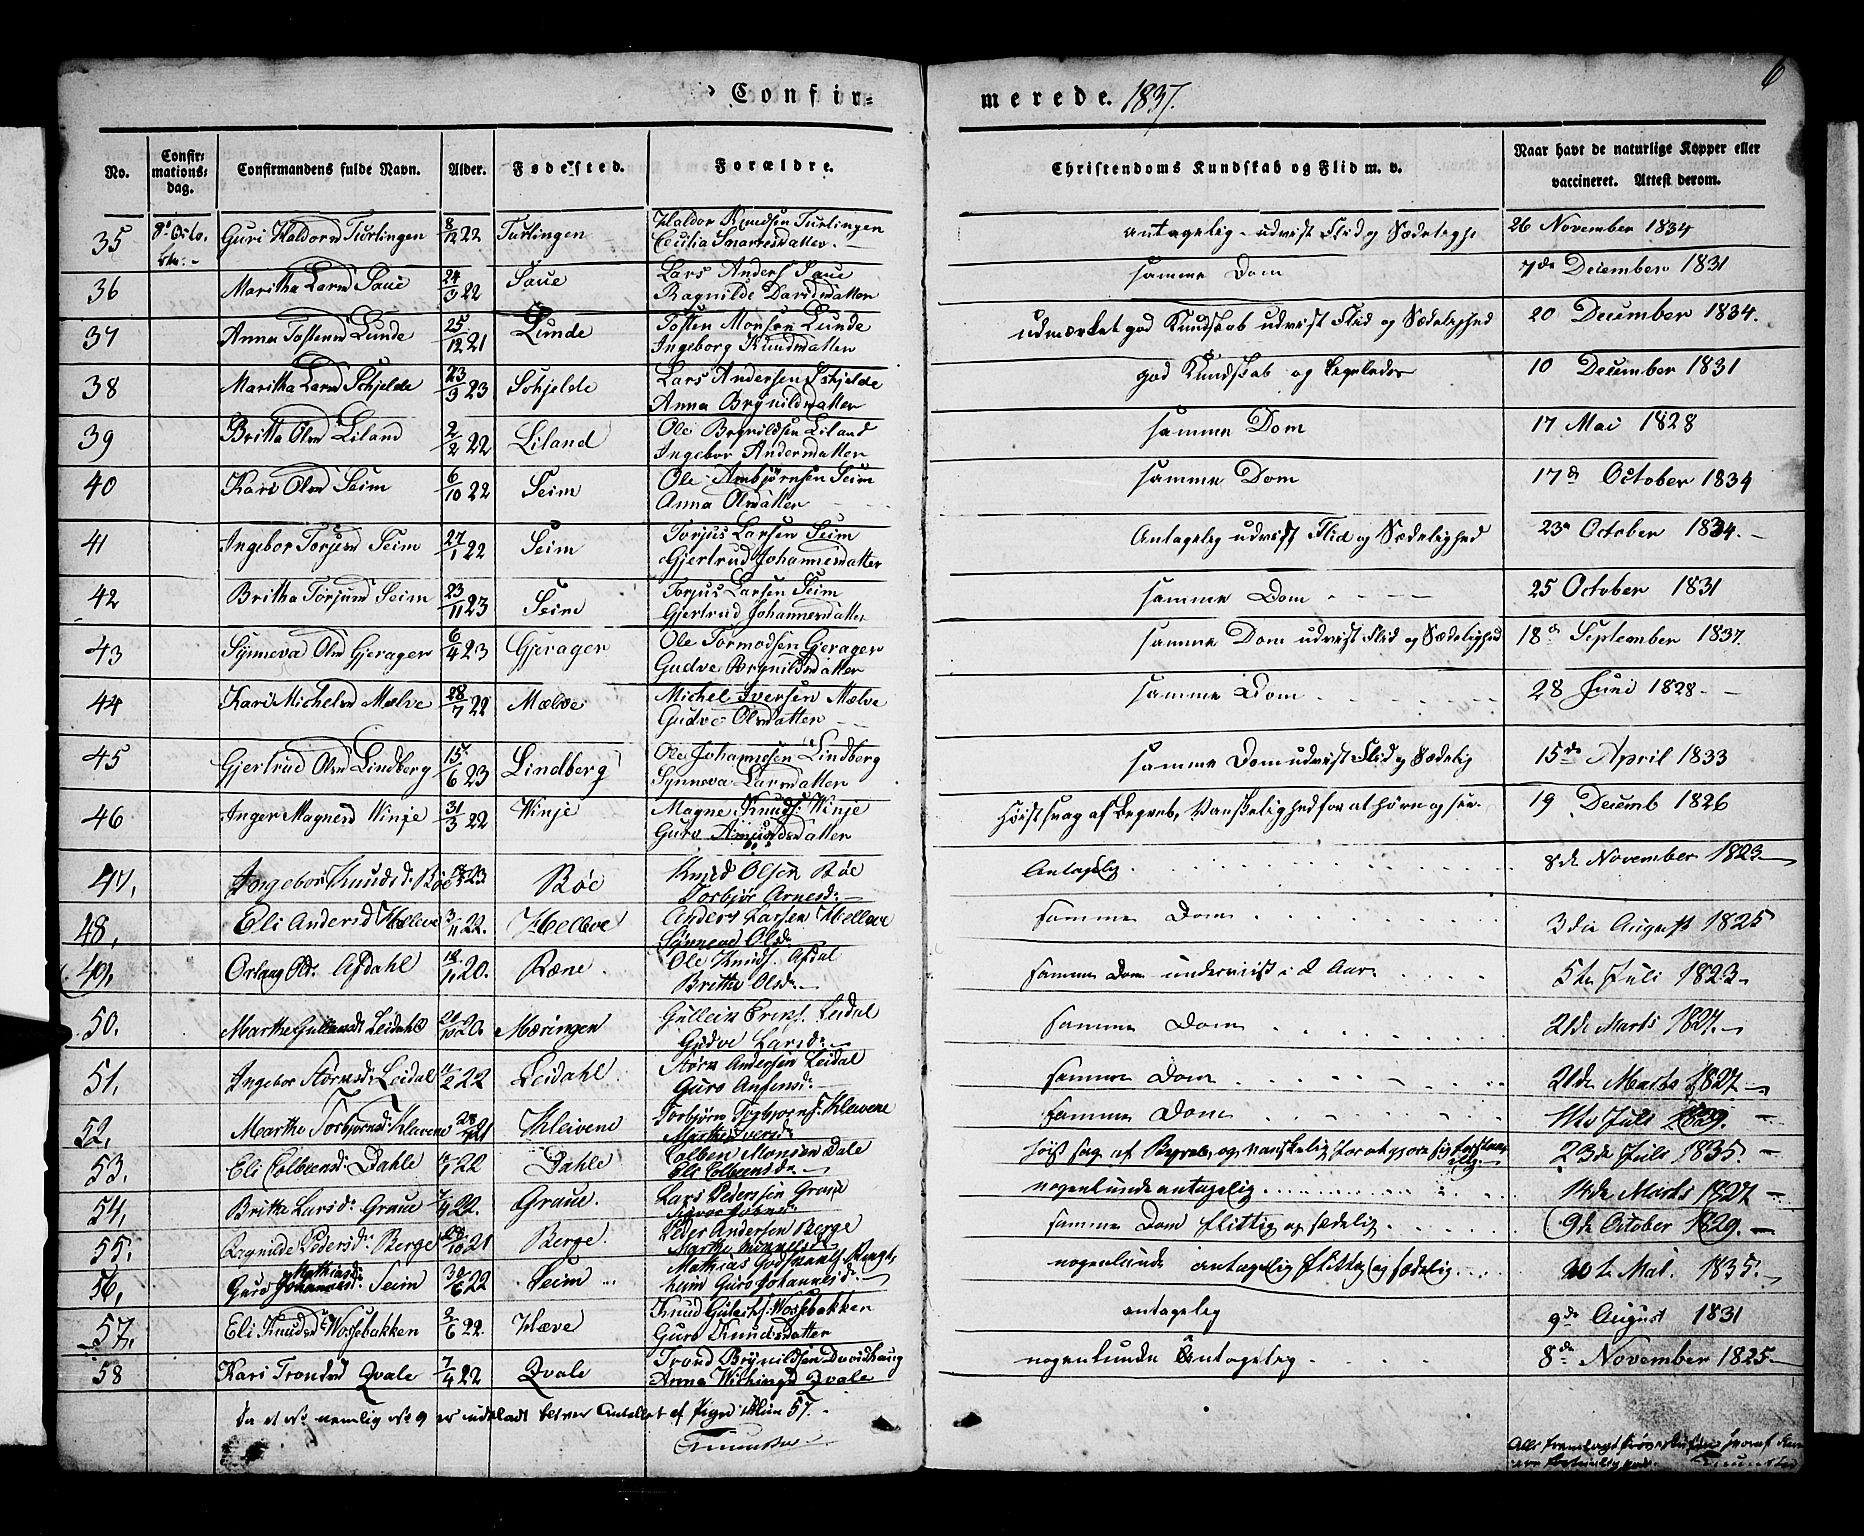 Confir-
merede. 1837.
6
No.
Confir-
mations-
dag.
Confirmandens fulde Navn.
Alder.
Fødested.
Forældre.
Christendoms Kundskab og Flid m. v.
Naar havt de naturlige Kopper eller
vaccineret. Attest derom.
35 8de Octo- Guri Haldorsd Turlingen 8/12 22 Turlingen Haldor Knudsen Turlingen antagelig udvist Flid og Sædelighe 26 November 1834
ber.- Cecilia datter.
36 Maritha Larsd Saue 24/3 22 Saue Lars Anders Saue samme Dom 7de December 1831
Ragnilde Davidsdatter
37 Anna Tostensd Lunde 25/12 21 Lunde Tosten Monsen Lunde udmærket god Kundskab udvist Flid og Sædelighed 20 December 1834.
Ingeborg Knudsdatter
38 Maritha Larsd Schjelde 23/3 23 Schjelde Lars Andersen Schjelde god Kundskab og Ligeledes 10 December 1831
Anna Brynildsdatter
39 Britha Olsd Liland 2/2 22 Liland Ole Brynildsen Liland samme Dom 17 Mai 1828
Ingebor Andersdatter
40 Kari Olsd Seim 6/10 22 Seim Ole Ambjørnsen Seim samme Dom 17de October 1834
Anna Olsdatter
41 Ingebor Torjusd Seim 27/1 22 Seim Torjus Larsen Seim Antagelig udvist Flid og Sædelighed 23de October 1834.
Gjertrud Johannesdatter
42 Britha Torjusd Seim 23/11 23 Seim Torjus Larsen Seim samme Dom 25 October 1831
Gjertrud Johannesdatter
43 Synneva Olsd Gjerager 6/4 23 Gjerager Ole Tormodsen Gjerager samme Dom udvist Flid og Sædelighed 18de September 1837.
Gudve Brynildsdatter
44 Kari Michelsd Mælve 28/7 22 Mælve Michel Iversen Mælve samme Dom 28 Juni 1828.
Gudve Olsdatter
45 Gjertrud Olsd Lindberg 15/6 23 Lindberg Ole Johannesen Lindberg samme Dom udvist Flid og Sædelig 15de April 1833
Synneva Larsdatter
46 Inger Magnesd Winje 31/3 22 Winje Magne Knuds: Winje Høist svag af Begreb, Vanskelighed for at høre og see. 19 Decemb 1826
Guro datter
47. Ingebor Knudsd: Røe 23 Røe Knud Olsen Røe Antagelig 8de November 1823
Torbjør Arnesd:
48. Eli Andersd Helleve 3/11 22. Helleve Anders Larsen Helleve samme Dom 3die August 1825
Synneva Olsd:
49. Orlaug Olsd: Afdahl 18/11 20. Ræne. Ole Knuds. Afdal samme Dom underviist i 2 Aar 5te Juli 1823
Britha Olsd:
50. Marthe Gulleinsd: Leidahl 20/10 20. Mæringen Gullein Leidal samme Dom 21de Marts 1827.
Gudve Larsd:
51. Ingebor Størksd: Leidal 11/2 22 Leidahl. Størk Andersen Leidal samme Dom 21de Marts 1827
Guro Anfinsd:
52. Marthe Torbjørnsd: Klevene 28/ 21 Kleivene Torbjørn Torbjørns: Klevene samme Dom 11te Juli 1829.
Marthe Iversd:
53. Eli Colbeensd: Dahle 22 Dahle Colben Monsen Dale høist svag af Begreb, og vanskelig for at gjøre sig forstaae- 23de Juli 1835.
Eli Colbeensd: elig
54. Britha Larsd: Graue /4 22. Graue. Lars Pedersen Graue nogenlunde antagelig 14de Marts 1827
55. Ragnilde Pedersd: Berge 29/10 21 Berge. Peder Andersen Berge samme Dom flittig og sædelig 9de October 1829.
Marthe
56. Guro Mathiasd: Johannesd: Seim 30/6 22 Seim Mathias nogenlunde antagelig flittig og sædelig 20de Mai. 1835.
Guro Johannesd:
57. Eli Knudsd Wossebakken 2/6 22. Klæve Knud Wossebakken antagelig 9de August 1831
Guro Knudsdatter
58 Kari Trondsd Qvale 7/4 22 Qvale Trond Brynildsen Davidhaug nogenlunde Antagelig 8de November 1825.
Anna Wichingsd Qvale
Da et No nemlig No 9 er udeladt bliver Antallet af Piger kun 57.